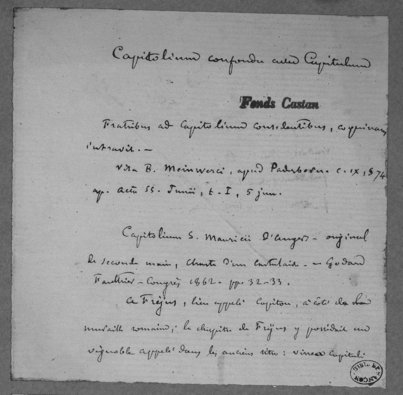 Capitolium confondu avec Capitulum
Fonds Castan
Fratribus ad Capitolium considentibus, coquinam
intravit. —
Vita B. Meinwerci, apud Paderborn. c. IX, § 74
ap. Acta SS. Junii, t. I, 5 jun.
Capitolium S. Mauricii d'Angers — original
de seconde main, charte d'un cartulaire. — Godard
Faultrier — Congrès 1862. pp. 32-33.
A Fréjus, lieu appelé Capiton, à côté de la
muraille romaine; le chapitre de Fréjus y possédait un
vignoble appelé dans les anciens titres : vinea Capituli